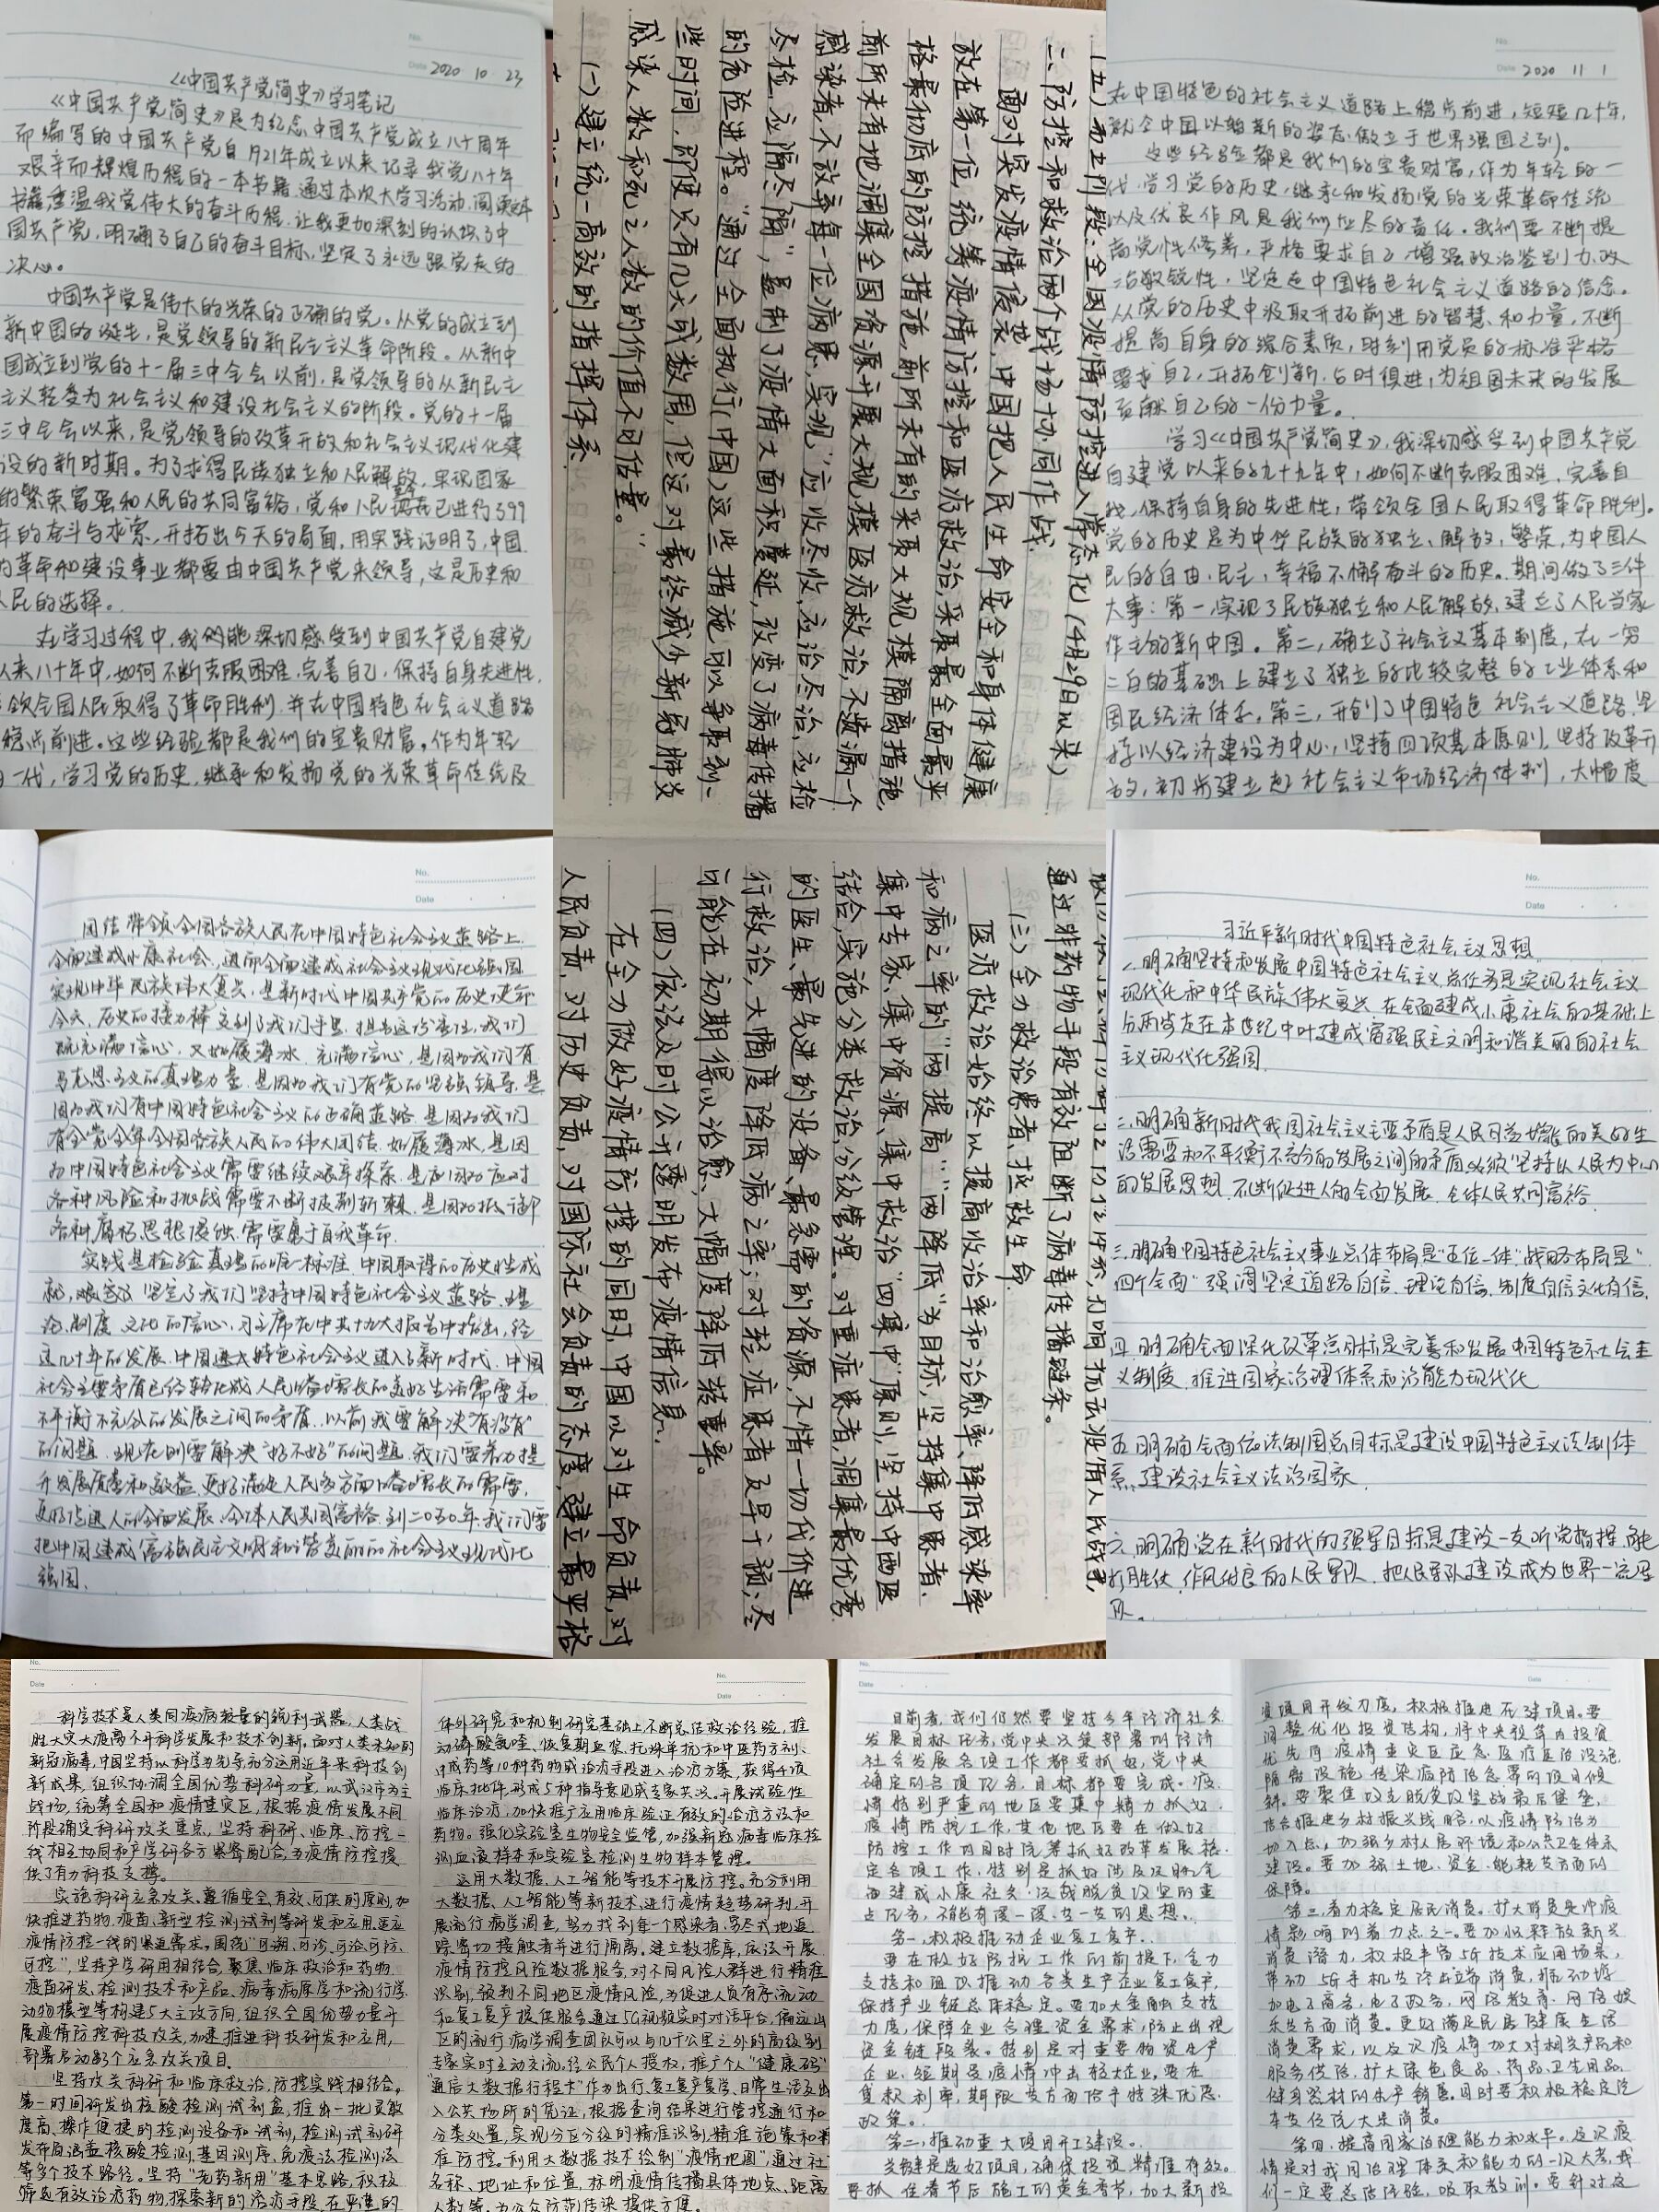 2020 10 23
《中国共产党简史》学习笔记
《中国共产党简史》是为纪念中国共产党成立八十周年
而编写的中国共产党自1921年成立以来记录我党八十年
艰辛而辉煌历程的一本书籍.通过本次大学习活动,阅读这本
书籍重温我党伟大的奋斗历程.让我更加深刻的认识了中
国共产党,明确了自己的奋斗目标,坚定了永远跟党走的
决心。
中国共产党是伟大的光荣的正确的党。从党的成立到
新中国的诞生,是党领导的新民主主义革命阶段。从新中
国成立到党的十一届三中全会以前,是党领导的从新民主
主义转变为社会主义和建设社会主义的阶段。党的十一届
三中全会以来,是党领导的改革开放和社会主义现代化建
设的新时期。为了求得民族独立和人民解放,实现国家
的繁荣富强和人民的共同富裕,党和人民已进行了99
年的奋斗与求索,开拓出今天的局面,用实践证明了,中国
的革命和建设事业都要由中国共产党来领导,这是历史和
人民的选择。
在学习过程中,我们能深切感受到中国共产党自建党
以来八十年中,如何不断克服困难,完善自己,保持自身先进性,
领全国人民取得了革命胜利.并在中国特色社会主义道路
稳步前进。这些经验都是我们的宝贵财富。作为年轻
一代,学习党的历史,继承和发扬党的光荣革命传统及
(五)第五阶段:全国疫情防控进入常态化(4月29日以来)
二、防控和救治两个战场协同作战
面对突发疫情侵袭,中国把人民生命安全和身体健康
放在第一位,统筹疫情防控和医疗救治,采取最全面最严
格最彻底的防控措施,前所未有的采取大规模隔离措施,
前所未有地调集全国资源开展大规模医疗救治,不遗漏一个
感染者,不放弃每一位病患,实现“应收尽收,应治尽治,应检
尽检,应隔尽隔”,遏制了疫情大面积蔓延,改变了病毒传播
的危险进程。“通过全面执行(中国)这些措施可以争取到一
些时间,即使只有几天或数周,但这对最终减少新冠肺炎
感染人数和死亡人数的价值不可估量。”
(一)建立统一高效的指挥体系
2020 11 1
在中国特色的社会主义道路上稳步前进,短短几十年,
就令中国以崭新的姿态傲立于世界强国之列。
这些经验都是我们的宝贵财富,作为年轻的一
代,学习党的历史,继承和发扬党的光荣革命传统
以及优良作风是我们应尽的责任。我们要不断提
高党性修养,严格要求自己,增强政治鉴别力、政
治敏锐性,坚定走中国特色社会主义道路的信念。
从党的历史中汲取开拓前进的智慧和力量,不断
提高自身的综合素质,时刻用党员的标准严格
要求自己,开拓创新,与时俱进,为祖国未来的发展
贡献自己的一份力量。
学习《中国共产党简史》,我深切感受到中国共产党
自建党以来的九十九年中,如何不断克服困难,完善自
我,保持自身的先进性,带领全国人民取得革命胜利。
党的历史是为中华民族的独立、解放,繁荣,为中国人
民的自由.民主,幸福不懈奋斗的历史。期间做了三件
大事:第一,实现了民族独立和人民解放,建立了人民当家
作主的新中国。第二,确立了社会主义基本制度,在一穷
二白的基础上建立了独立的比较完整的工业体系和
国民经济体系。第三,开创了中国特色社会主义道路.坚
持以经济建设为中心,坚持四项基本原则.坚持改革开
放,初步建立起社会主义市场经济体制,大幅度
No.
Date
团结带领全国各族人民在中国特色社会主义道路上
全面建成小康社会,进而全面建成社会主义现代化强国
实现中华民族伟大复兴.是新时代中国共产党的历史使命
今天,历史的接力棒交到了我们手里.担当这份责任,我们
既充满信心.又如履薄冰.充满信心,是因为我们有
马克思主义的真理力量.是因为我们有党的坚强领导.是
因为我们有中国特色社会主义的正确道路.是因为我们
有全党全军全国各族人民的伟大团结.如履薄冰,是因
为中国特色社会主义需要继续艰辛探索.是因为应对
各种风险和挑战需要不断披荆斩棘.是因为抵御
各种腐朽思想侵蚀.需要勇于自我革命.
实践是检验真理的唯一标准.中国取得的历史性成
就,坚定了我们坚持中国特色社会主义道路.理
论.制度.文化的信心.习主席在中共十九大报告中指出,经
过几十年的发展.中国特色社会主义进入了新时代.中国
社会主要矛盾已经转化成人民日益增长的美好生活需要和
不平衡不充分的发展之间的矛盾.以前我要解决“有没有”
的问题.现在则要解决“好不好”的问题.我们要着力提
升发展质量和效益.更好满足人民多方面日益增长的需要,
更好促进人的全面发展.全体人民共同富裕.到二0五0年.我们要
把中国建成富强民主文明和谐美丽的社会主义现代化
强国.
通过非药物手段有效阻断了病毒传播链条。
(三)全力救治患者、拯救生命
医疗救治始终以提高收治率和治愈率、降低感染率
和病亡率的“两提高”“两降低”为目标,坚持集中患者、
集中专家、集中资源、集中救治“四集中”原则,坚持中西医
结合,实施分类救治、分级管理。对重症患者,调集最优秀
的医生、最先进的设备、最急需的资源,不惜一切代价进
行救治,大幅度降低病亡率;对轻症患者及早干预,尽
可能在初期得以治愈,大幅度降低转重率。
(四)依法及时公开透明发布疫情信息.
在全力做好疫情防控的同时,中国以对生命负责,对
人民负责,对历史负责,对国际社会负责的态度,建立最严格
No.
Date
习近平新时代中国特色社会主义思想
一.明确坚持和发展中国特色社会主义,总任务是实现社会主义
现代化和中华民族伟大复兴.在全面建成小康社会的基础上
分两步走在本世纪中叶建成富强民主文明和谐美丽的社会
主义现代化强国.
二.明确新时代我国社会主义主要矛盾是人民日益增长的美好生
活需要和不平衡不充分的发展之间的矛盾,必须坚持以人民为中心
的发展思想.不断促进人的全面发展.全体人民共同富裕.
三.明确中国特色社会主义事业总体布局是“五位一体”战略布局是“
四个全面”强调坚定道路自信.理论自信.制度自信文化自信.
四.明确全面深化改革总目标是完善和发展中国特色社会主
义制度.推进国家治理体系和治能力现代化
五.明确全面依法制国总目标是建设中国特色主义法制体
系.建设社会主义法治国家.
六.明确党在新时代的强军目标是建设一支听党指挥.能
打胜仗.作风优良的人民军队.把人民军队建设成为世界一流军
队。
No.
Date
科学技术是人类同疾病较量的锐利武器,人类战
胜大灾大疫离不开科学发展和技术创新,面对人类未知的
新冠病毒,中国坚持以科学为先导,充分运用近年来科技创
新成果,组织协调全国优势科研力量,以武汉市为主
战场,统筹全国和疫情重灾区,根据疫情发展不同
阶段确定科研攻关重点,坚持科研、临床、防控一
线相互协同和产学研各方紧密配合,为疫情防控提
供了有力科技支撑。
实施科研应急攻关。遵循安全、有效、可供的原则,加
快推进药物、疫苗、新型检测试剂等研发和应用,适应
疫情防控一线的紧迫需求。围绕“可溯、可诊、可治、可防、
可控”,坚持产学研用相结合,聚焦临床救治和药物、
疫苗研发、检测技术和产品、病毒病原学和流行学、
动物模型等构建5大主攻方向,组织全国优势力量开
展疫情防控科技攻关,加速推进科技研发和应用,
部署启动83个应急攻关项目。
坚持攻关科研和临床救治、防控实践相结合。
第一时间研发出核酸检测试剂盒,推出一批灵敏
度高、操作便捷的检测设备和试剂,检测试剂研
发布局涵盖核酸检测、基因测序、免疫法检测法
等多个技术路径。坚持“老药新用”基本思路,积极
筛选有效治疗药物,探索新的治疗手段,在严谨的
No.
Date
体外研究和机制研究基础上不断总结救治经验,推
动磷酸氯喹、恢复期血浆、托珠单抗和中医药方剂、
中成药等10种药物或治疗手段进入治疗方案,获得4项
临床批件,形成5种指导意见或专家共识。开展试验性
临床治疗,加快推广应用临床验证有效的治疗方法和
药物。强化实验室生物安全监管,加强新冠病毒临床检
测血液样本和实验室检测生物样本管理。
运用大数据、人工智能等技术开展防控。充分利用
大数据、人工智能等新技术,进行疫情趋势研判,开
展流行病学调查,努力找到每一个感染者、穷尽式地追
踪密切接触者并进行隔离。建立数据库,依法开展
疫情防控风险数据服务,对不同风险人群进行精准
识别,预判不同地区疫情风险,为促进人员有序流动
和复工复产提供服务通过5G视频实时对话平台,偏远山
区的流行病学调查团队可以与几千公里之外的高级别
专家实时互动交流。经公民个人授权,推广个人“健康码”
“通信大数据行程卡”作为出行、复工复产复学、日常生活及出
入公共场所的凭证,根据查询结果进行管控通行和
分类处置,实现分区分级的精准识别、精准施策和精
准防控。利用大数据技术绘制“疫情地图”,通过社
名称、地址和位置,标明疫情传播具体地点、距离
人数等,为公众防范传染提供方便。
No.
Date
目前看,我们仍然要坚持今年经济社会
发展目标任务,党中央决策部署的经济
社会发展各项工作都要抓好,党中央
确定的各项任务,目标都要完成。疫
情特别严重的地区要集中精力抓好
疫情防控工作,其他地区要在做好
防控工作的同时统筹抓好改革发展稳
定各项工作,特别是抓好涉及决胜全
面建成小康社会.决战脱贫攻坚的重
点任务,不能有缓一缓、等一等的思想。
第一,积极推动企业复工复产。
要在做好防控工作的前提下,全力
支持和组织推动各类生产企业复工复产,
保持产业链总体稳定。要加大金融支持
力度,保障企业合理资金需求,防止出现
资金链断裂。特别是对重要物资生产
企业,短期受疫情冲击较大企业,要在
贷款利率,期限等方面给予特殊优惠
政策。
第二,推动重大项目开工建设。
关键是选好项目,确保投资精准有效。
要抓住春节后施工的黄金季节,加大新投
No.
Date
资项目开发力度,积极推进在建项目。要
调整优化投资结构,将中央预算内投资
优先向疫情重灾区应急医疗医治设施,
隔离设施,传染病防治急需的项目倾
斜。要聚焦攻克脱贫攻坚战最后堡垒,
结合推进乡村振兴战略,以疫情防治为
切入点,加强乡村人居环境和公共卫生体系
建设。要加强土地、资金、能耗等方面的
保障。
第三,着力稳定居民消费。扩大消费是冲疫
情影响的着力点之一。要加快释放新兴
消费潜力,积极丰富5G技术应用场景,
带动5G手机等终端消费,推动增
加电子商务,电子政务,网络教育,网络娱
乐等方面消费。更好满足民居健康生活
消费需求,以及次疫情加大对相关产品和
服务供给,扩大绿色食品、药品、卫生用品、
健身器材的生产销售。同时要积极稳定汽
车等传统大宗消费。
第四,提高国家治理能力和水平。这次疫
情是对我国治理体系和能力的一次大考,我
们一定要总结经验,吸取教训。要针对这